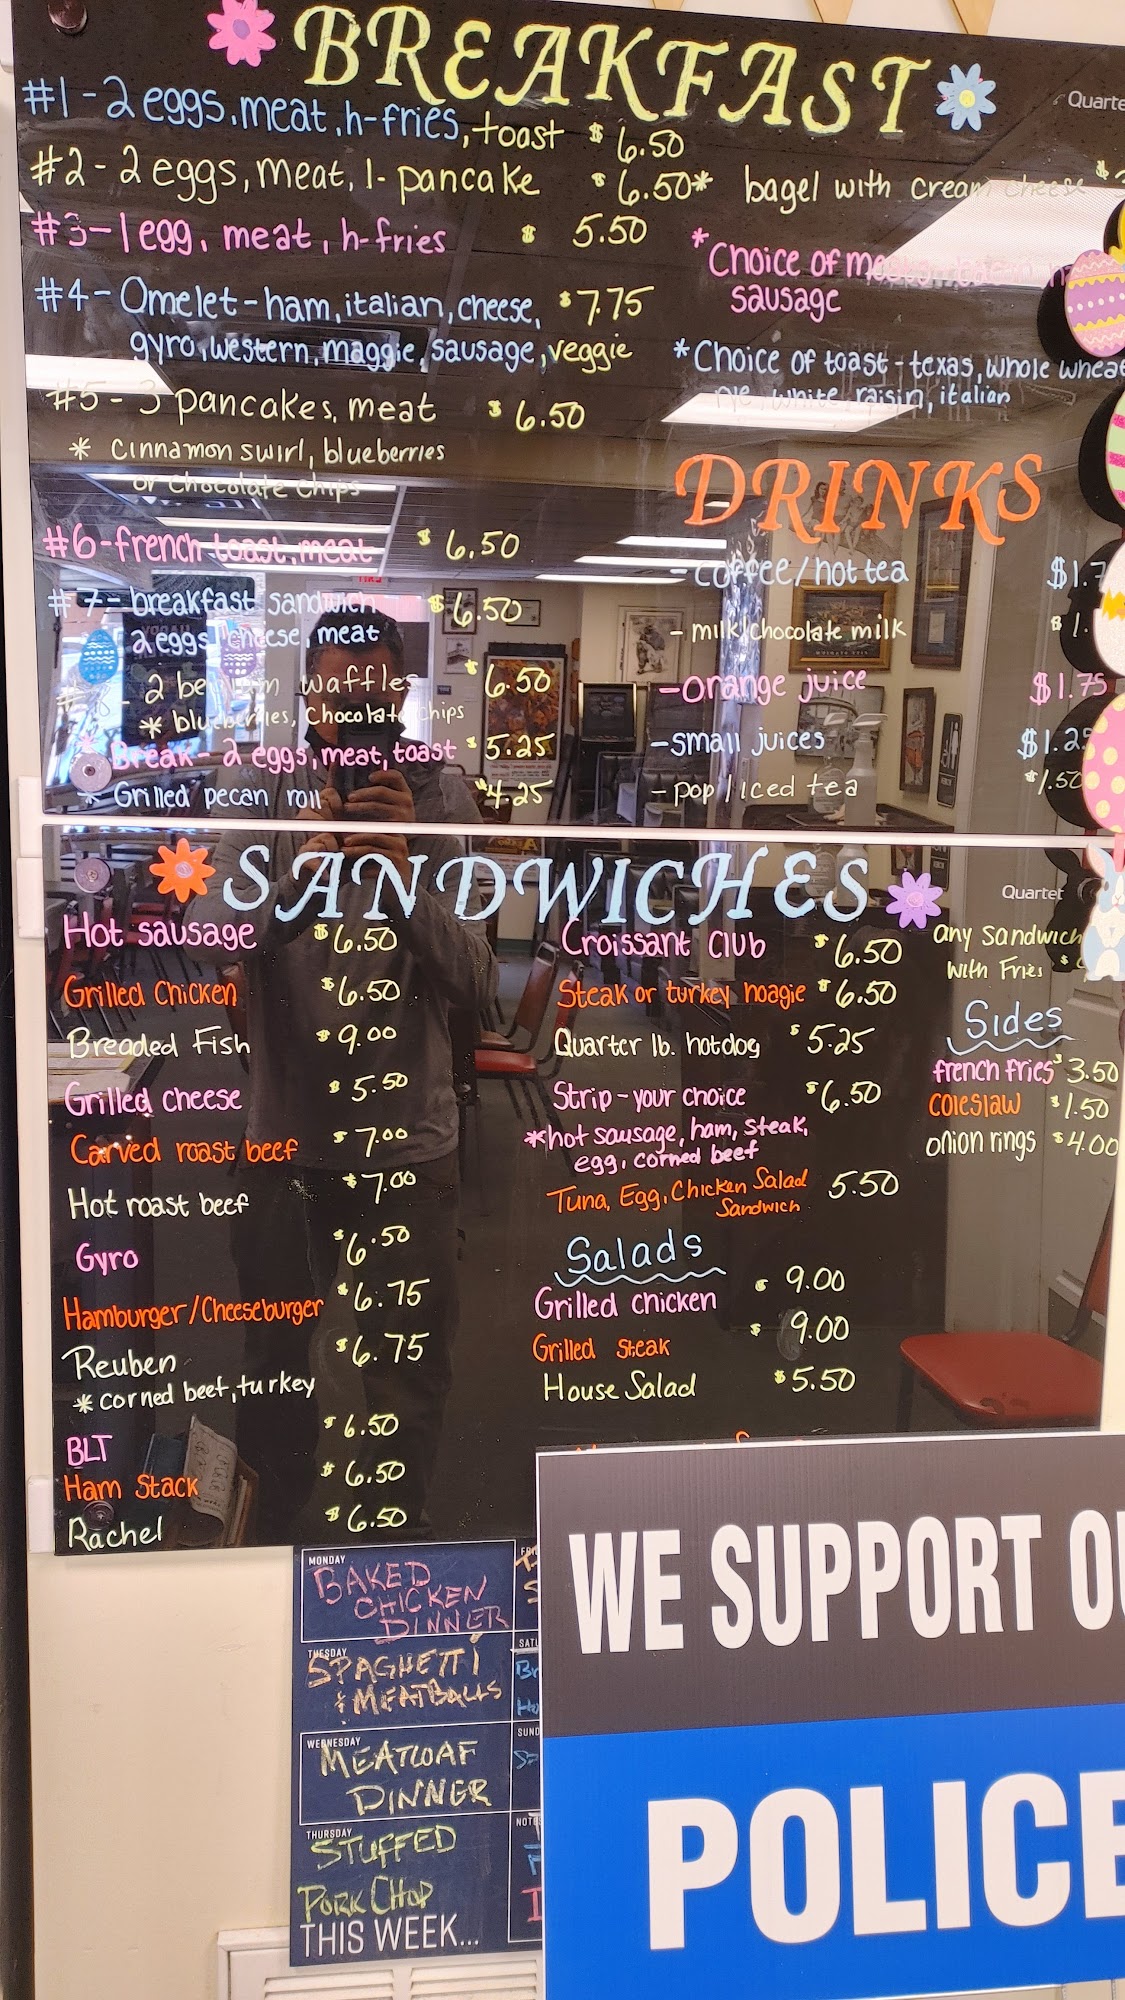 BREAKFAST
Quarte
#1 - 2 eggs, meat, h-fries, toast $6.50
#2 - 2 eggs, meat, 1- pancake $6.50
* bagel with cream cheese $
#3 - 1 egg, meat, h-fries $5.50
*Choice of
sausage
#4 - Omelet - ham, italian, cheese, $7.75
gyro, western, maggie, sausage, veggie
*Choice of toast - texas, whole wheat
rye, white, raisin, italian
#5 - 3 pancakes, meat $6.50
* cinnamon swirl, blueberries
or chocolate chips
#6 - french toast, meat $6.50
#7 - breakfast sandwich $6.50
2 eggs, cheese, meat
2 waffles $6.50
* blueberries, chocolate chips
* Break - 2 eggs, meat, toast $5.25
* Grilled pecan roll $4.25
DRINKS
- coffee/hot tea $1.7
- milk/chocolate milk $1.
- orange juice $1.75
- small juices $1.25
- pop/iced tea $1.50
SANDWICHES
Quartet
Hot sausage $6.50
Grilled Chicken $6.50
Breaded Fish $9.00
Grilled cheese $5.50
Carved roast beef $7.00
Hot roast beef $7.00
Gyro $6.50
Hamburger/Cheeseburger $6.75
Reuben $6.75
* corned beef, turkey
BLT $6.50
Ham Stack $6.50
Rachel $6.50
Croissant Club $6.50
Steak or turkey hoagie $6.50
Quarter lb. hotdog $5.25
Strip - your choice $6.50
*hot sausage, ham, steak,
egg, corned beef
Tuna, Egg, Chicken Salad 5.50
Sandwich
Salads
Grilled chicken $9.00
Grilled steak $9.00
House Salad $5.50
any sandwich
with Fries $
Sides
french fries $3.50
coleslaw $1.50
onion rings $4.00
MONDAY
BAKED
CHICKEN
DINNER
TUESDAY
SPAGHETTI
& MEATBALLS
WEDNESDAY
MEATLOAF
DINNER
THURSDAY
STUFFED
PORK CHOP
THIS WEEK...
FRI
SATU
SUND
NOTE
WE SUPPORT OU
POLICE